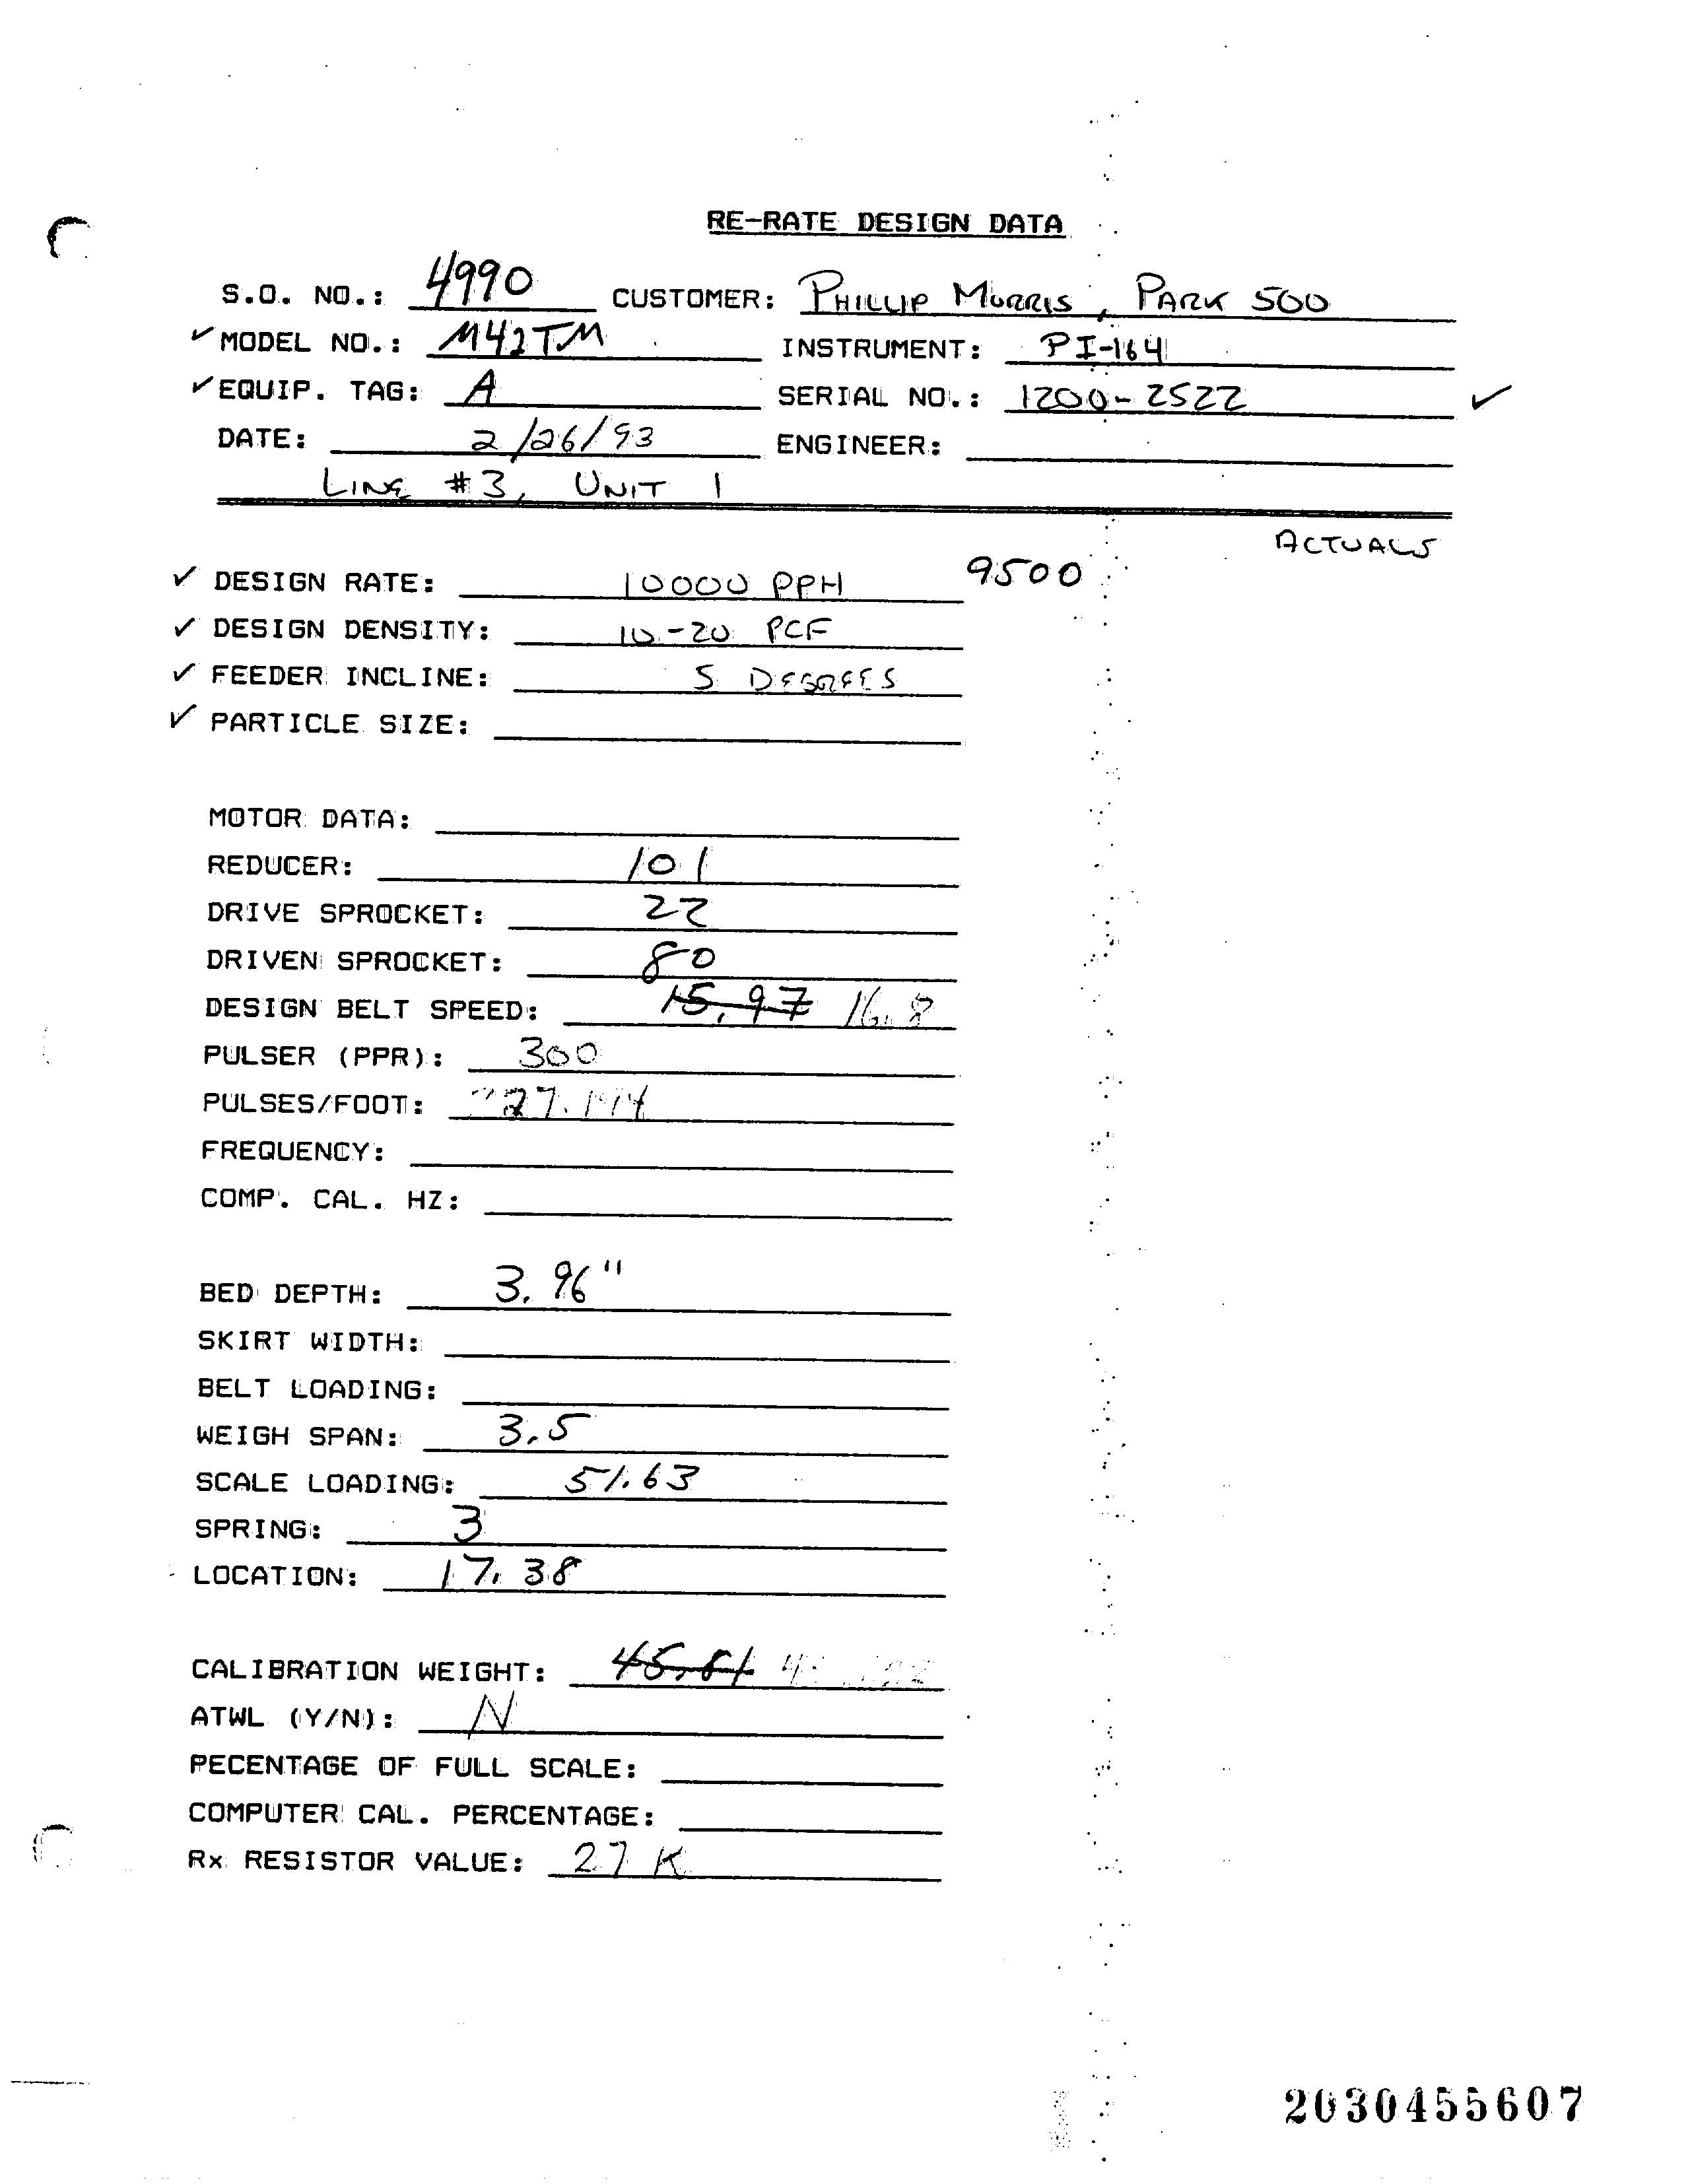 RE-RATE DESIGN DATA
S.O. NO.: 4990 CUSTOMER: PHILLIP MORRIS, PARK 500
✓ MODEL NO.: M42TM INSTRUMENT: PI-164
✓ EQUIP. TAG: A SERIAL NO.: 1200-2522 ✓
DATE: 2/26/93 ENGINEER:
LINE #3, UNIT 1
ACTUALS
✓ DESIGN RATE: 10000 PPH 9500
✓ DESIGN DENSITY: 10-20 PCF
✓ FEEDER INCLINE: 5 DEGREES
✓ PARTICLE SIZE:
MOTOR DATA:
REDUCER: 101
DRIVE SPROCKET: 22
DRIVEN SPROCKET: 80
DESIGN BELT SPEED: 15.97 16.8
PULSER (PPR): 300
PULSES/FOOT:
FREQUENCY:
COMP. CAL. HZ:
BED DEPTH: 3.96"
SKIRT WIDTH:
BELT LOADING:
WEIGH SPAN: 3.5
SCALE LOADING: 51.63
SPRING: 3
LOCATION: 17.38
CALIBRATION WEIGHT:
ATWL (Y/N): N
PECENTAGE OF FULL SCALE:
COMPUTER CAL. PERCENTAGE:
Rx RESISTOR VALUE: 27 K
2030455607